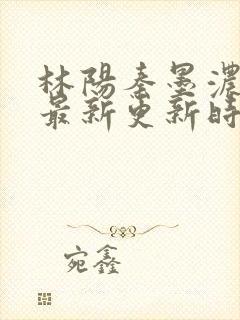 林陽秦墨濃
最新更新時
宛鑫